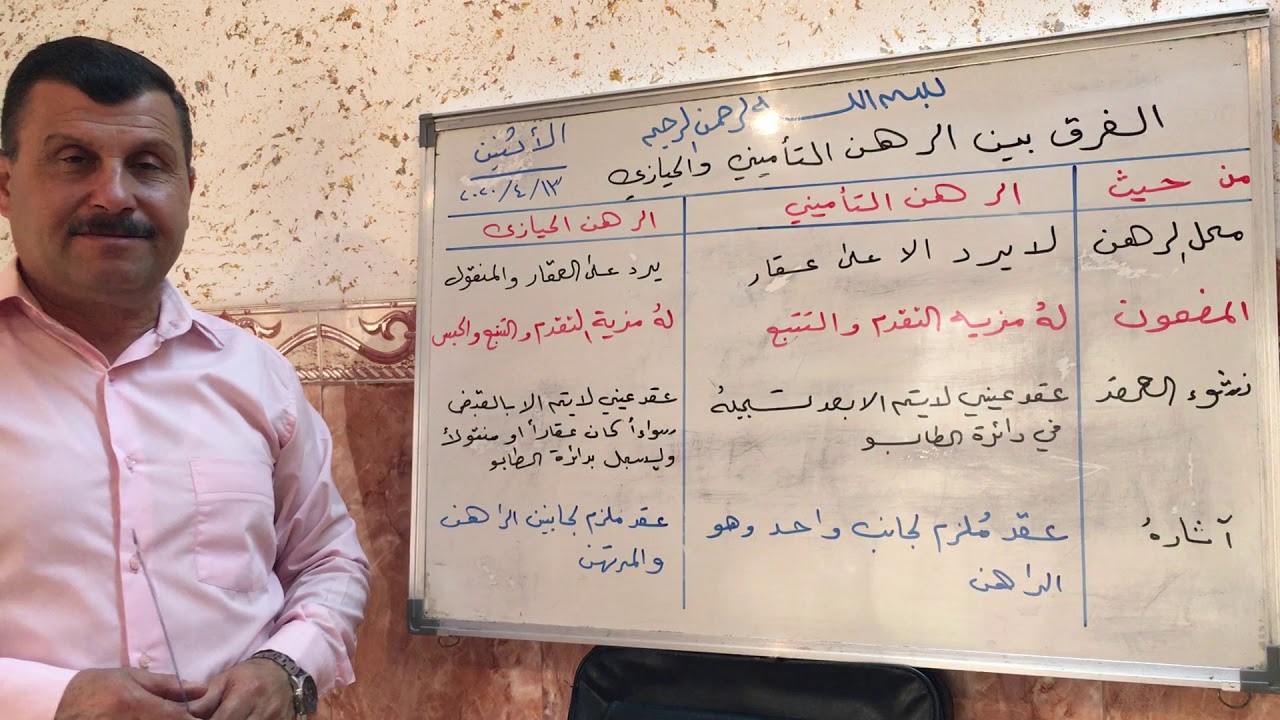 بسم الله الرحمن الرحيم
الأثنين
٢٠٢٠/٤/١٣
الفرق بين الرهن التأميني والحيازي
من حيث
الرهن التأميني
الرهن الحيازي
محل الرهن
لا يرد الا على عقار
يرد على العقار والمنقول
المضمون
لهُ مزيه التقدم والتتبع
لهُ مزية التقدم والتتبع والحبس
نشوء العقد
عقد عيني لا يتم الا بعد تسجيلهُ
في دائرة الطابو
عقد عيني لا يتم الا بالقبض
سواءاً كان عقاراً او منقولاً
وليسجل بدائرة الطابو
آثارهُ
عقد مُلزم لجانب واحد وهو
الراهن
عقد ملزم لجانبين الراهن
والمرتهن